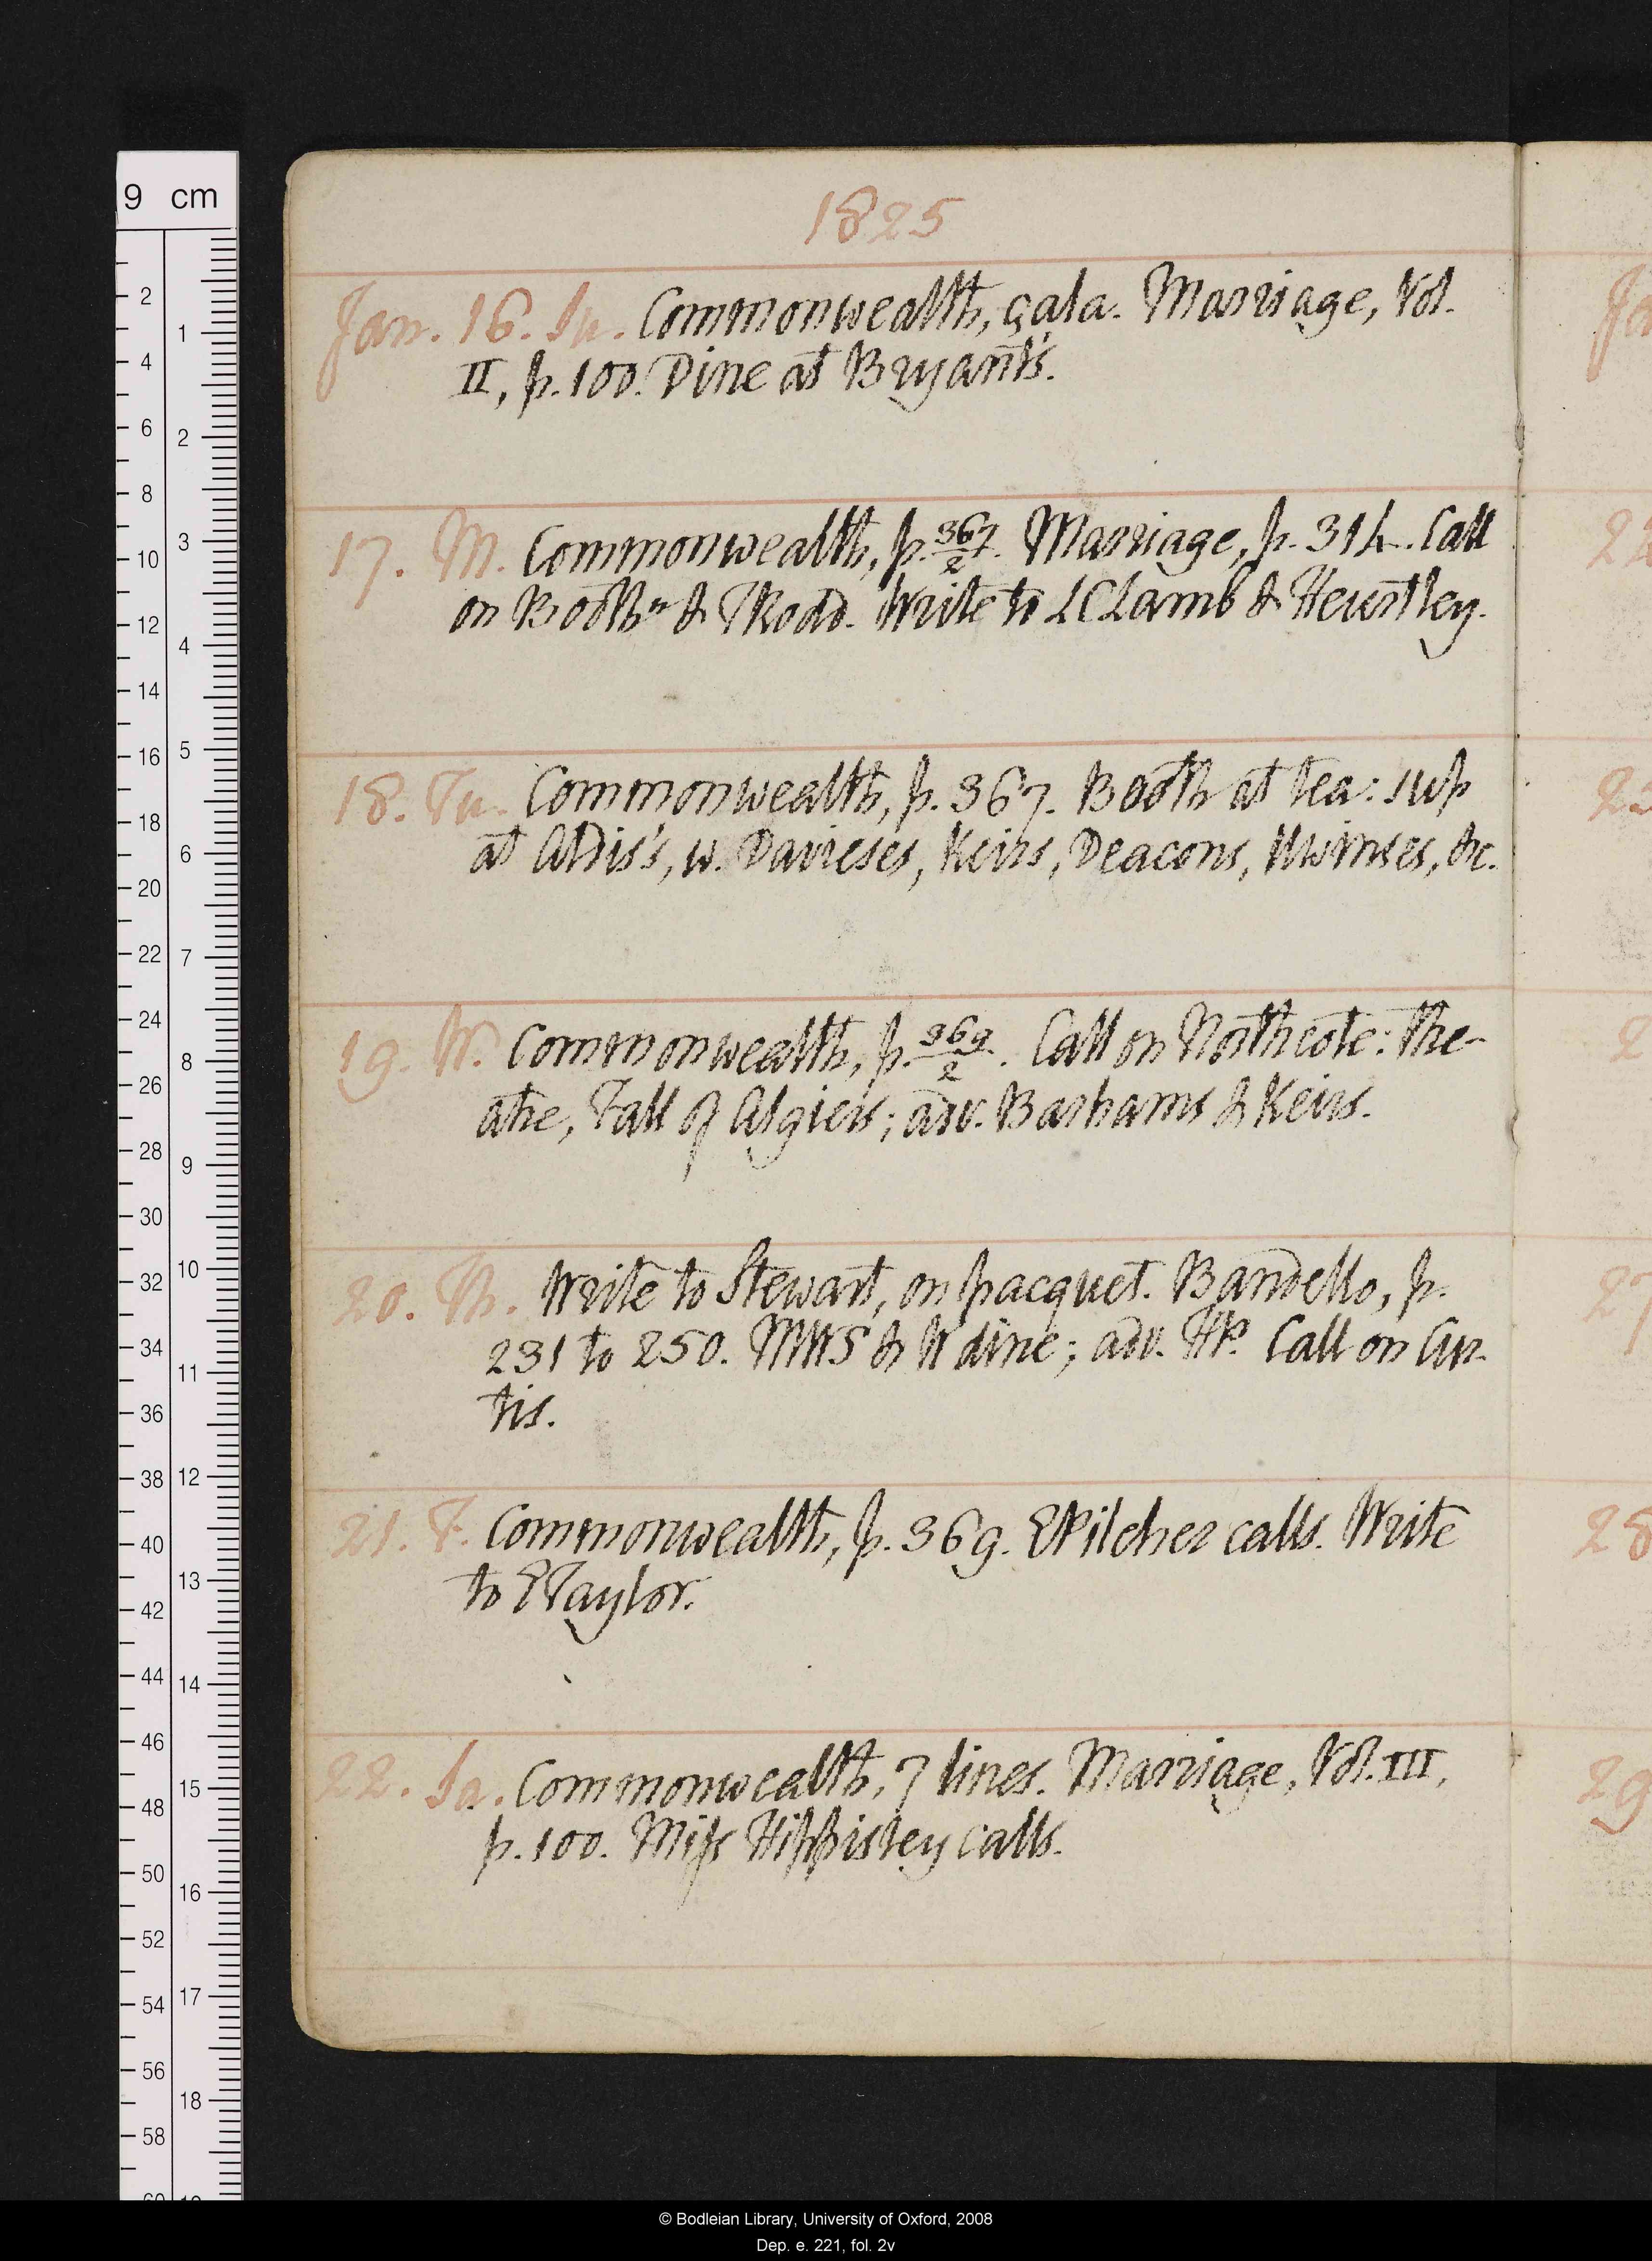 1825
Jan. 16. Su. Commonwealth, gala. Marriage, Vol.
II, p. 100. Dine at Bryant's.
17. M. Commonwealth, p. 367/2. Marriage, p. 314. Call
on Boothn & TRodd. Write to LCLamb & Heustley.
18. Tu. Commonwealth, p. 367. Booth at tea: sup
at Aldis's, w. Davieses, Keirs, Deacons, Uwinses, &c.
19. W. Commonwealth, p. 369/2. Call on Northcote: The-
atre, Fall of Algiers; adv. Barhams & Keirs.
20. Th. Write to Stewart, on pacquet. Bandello, p.
231 to 250. MWS & W dine; adv. HP. Call on Cur-
tis.
21. F. Commonwealth, p. 369. EPilcher calls. Write
to ETaylor.
22. Sa. Commonwealth, 7 lines. Marriage, Vol. III,
p. 100. Miss Hippisley calls.
9 cm
© Bodleian Library, University of Oxford, 2008
Dep. e. 221, fol. 2v